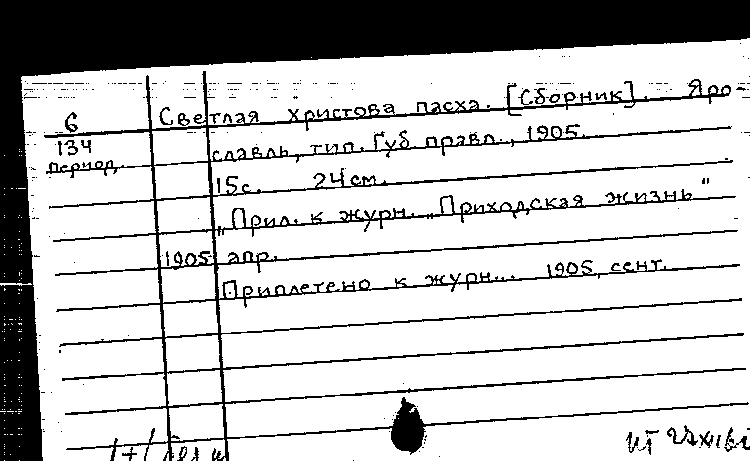 6 Светлая Христова пасха. [Сборник]. Яро-
134 славль, тип. Губ правл., 1905.
период. 15с. 24см.
„Прил. к журн. „Приходская жизнь"
1905 апр.
Приплетено к журн... 1905, сент.